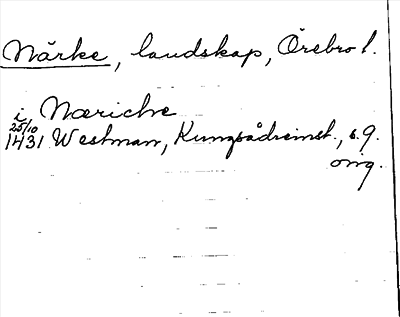 Närke, landskap, Örebro l.
i Næriche
25/10
1431 Westman, Kungsådreinst., s. 9.
orig.